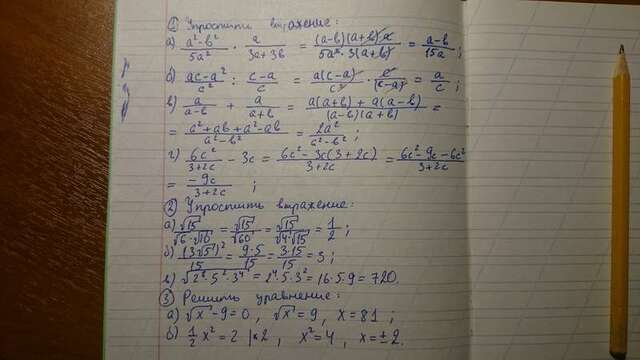 ① Упростить выражение:
а) (a²-b²)/(5a²) · a/(3a+3b) = ((a-b)(a+b)a)/(5a²·3(a+b)) = (a-b)/(15a) ;
б) (ac-a²)/c² : (c-a)/c = (a(c-a))/c² · c/(c-a) = a/c ;
в) a/(a-b) + a/(a+b) = (a(a+b)+a(a-b))/((a-b)(a+b)) =
= (a²+ab+a²-ab)/(a²-b²) = 2a²/(a²-b²) ;
г) 6c²/(3+2c) - 3c = (6c²-3c(3+2c))/(3+2c) = (6c²-9c-6c²)/(3+2c)
= -9c/(3+2c) ;
② Упростить выражение:
а) √15/(√6·√10) = √15/√60 = √15/(√4·√15) = 1/2 ;
б) (3√5)²/15 = 9·5/15 = 3 ;
в) √(2⁸·5²·3⁴) = 2⁴·5·3² = 16·5·9 = 720
③ Решить уравнение:
а) √x - 9 = 0, √x = 9, x = 81 ;
б) 1/2 x² = 2 |·2, x² = 4, x = ±2.